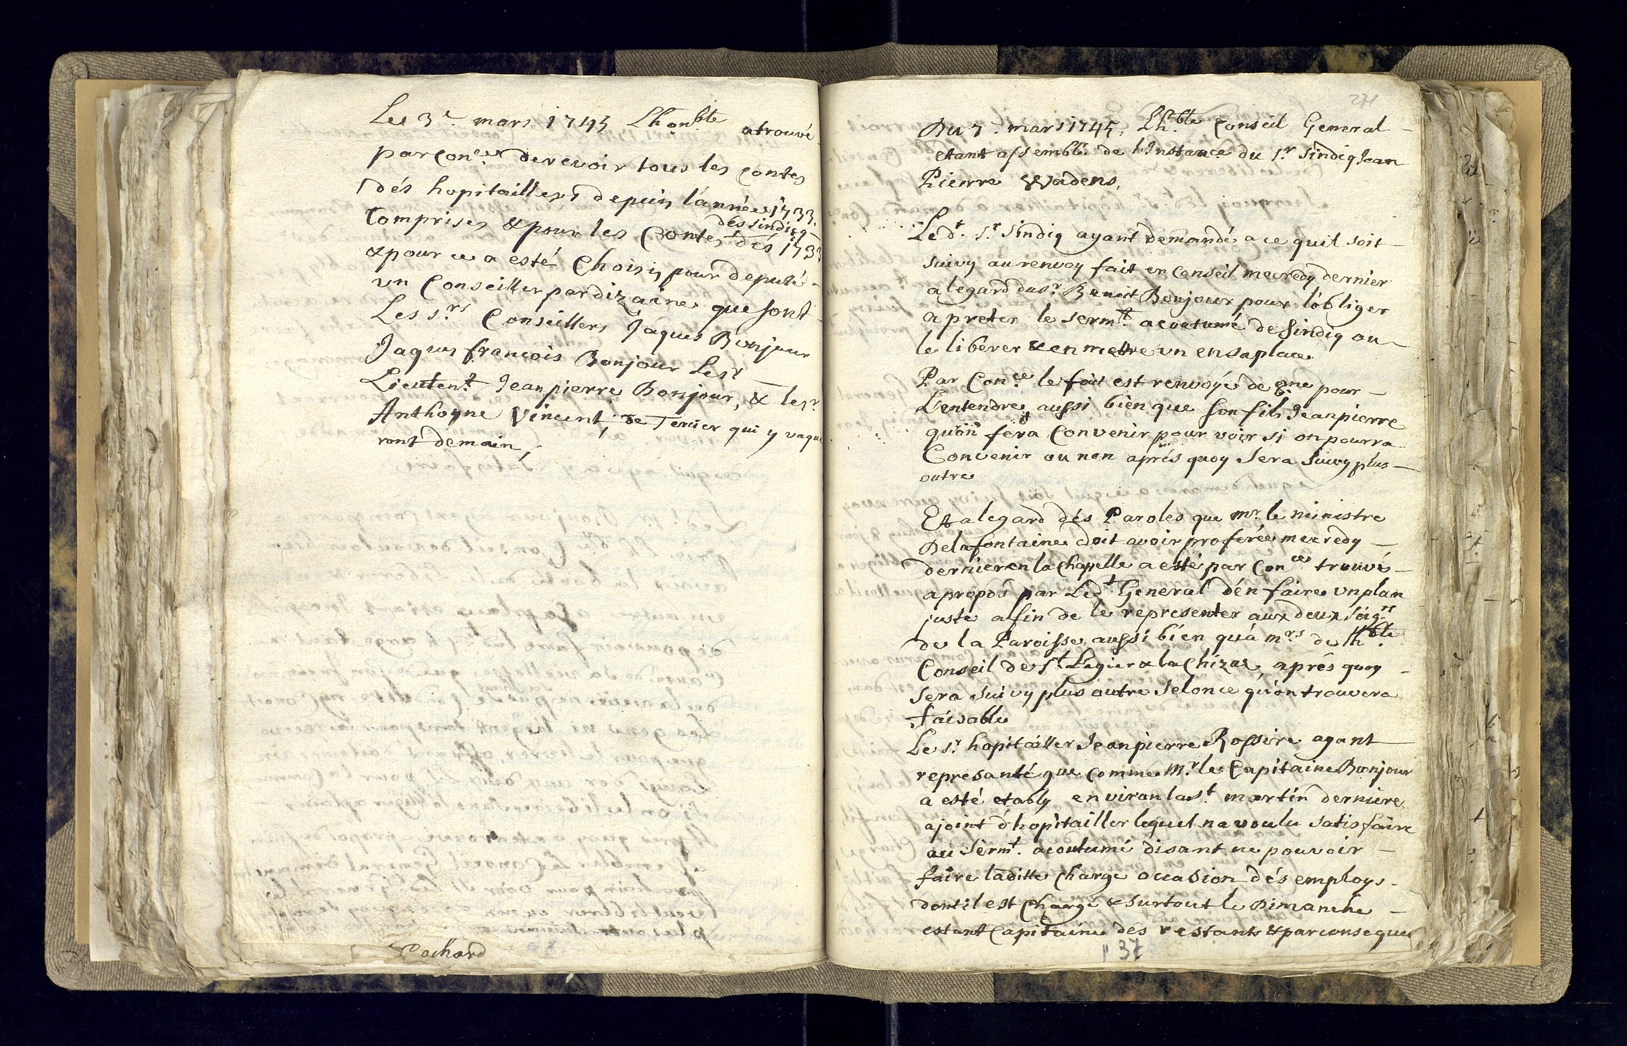 Le 3e. mars 1745 Lhonble atrouvé
par Conce de revoir tous les contes
dés hopitailliers depuis l'année 1733.
Comprises & pour les Contes dés
des sindicq
& pour ce a esté Choisis pour deputé
un Conseiller par dizaine que sont
Les srs Conseillers Jaques Bonjour
Jaques francois Bonjour Le sr
Lieutent Jeanpierre Bonjour, & le sr.
Anthoyne Vincent, de Terrier qui y vaque
ront demain,
Pachard
271
Du 7. mars 1745, Lh.ble Conseil General
etant assemblé de l'Instance du sr Sindiq Jean
Pierre Wadens,
Led.t sr Sindiq ayant demandé a ce quil soit
Suivy au renvoy fait en Conseil mecredy dernier
a legard du sr Benoit Bonjour pour l'obliger
a preter le serm.tt acoutumé de Sindiq ou
le libérer & en mettre un en sa place
Par Conce le fait est renvoyé de gne pour
L'entendre, aussi bien que son fils Jeanpierre
qu'on fera Convenir pour voir si on pourra
Convenir ou non aprés quoy Sera Suivy plus
outre
Et a legard dés Paroles que mr. le ministre
Delafontaine doit avoir proferée mecredy
dernier en la Chapelle a esté par Conce trouvé
a propos par Led.t General d'en faire un plan
juste afin de le representer aux deux Seigrs
de la Paroisse aussi bien qu'á mrs de lh.ble
Conseil de St. Legier & la Chiza, aprés quoy
Sera Suivy plus outre Selon ce qu'on trouvera
faisable
Le sr. hopitailler Jeanpierre Rossire ayant
representé que comme Mr. le Capitaine Bonjour
a esté etably environ la st martin derniere
ajoint d'hopitailler lequel na voulu satisfaire
au Sermt. acoutumé disant ne pouvoir
faire laditte Charge occasion dés employs
dont il est Chargé & Surtout le Dimanche
estant Capitaine dés restants & par conseque
37